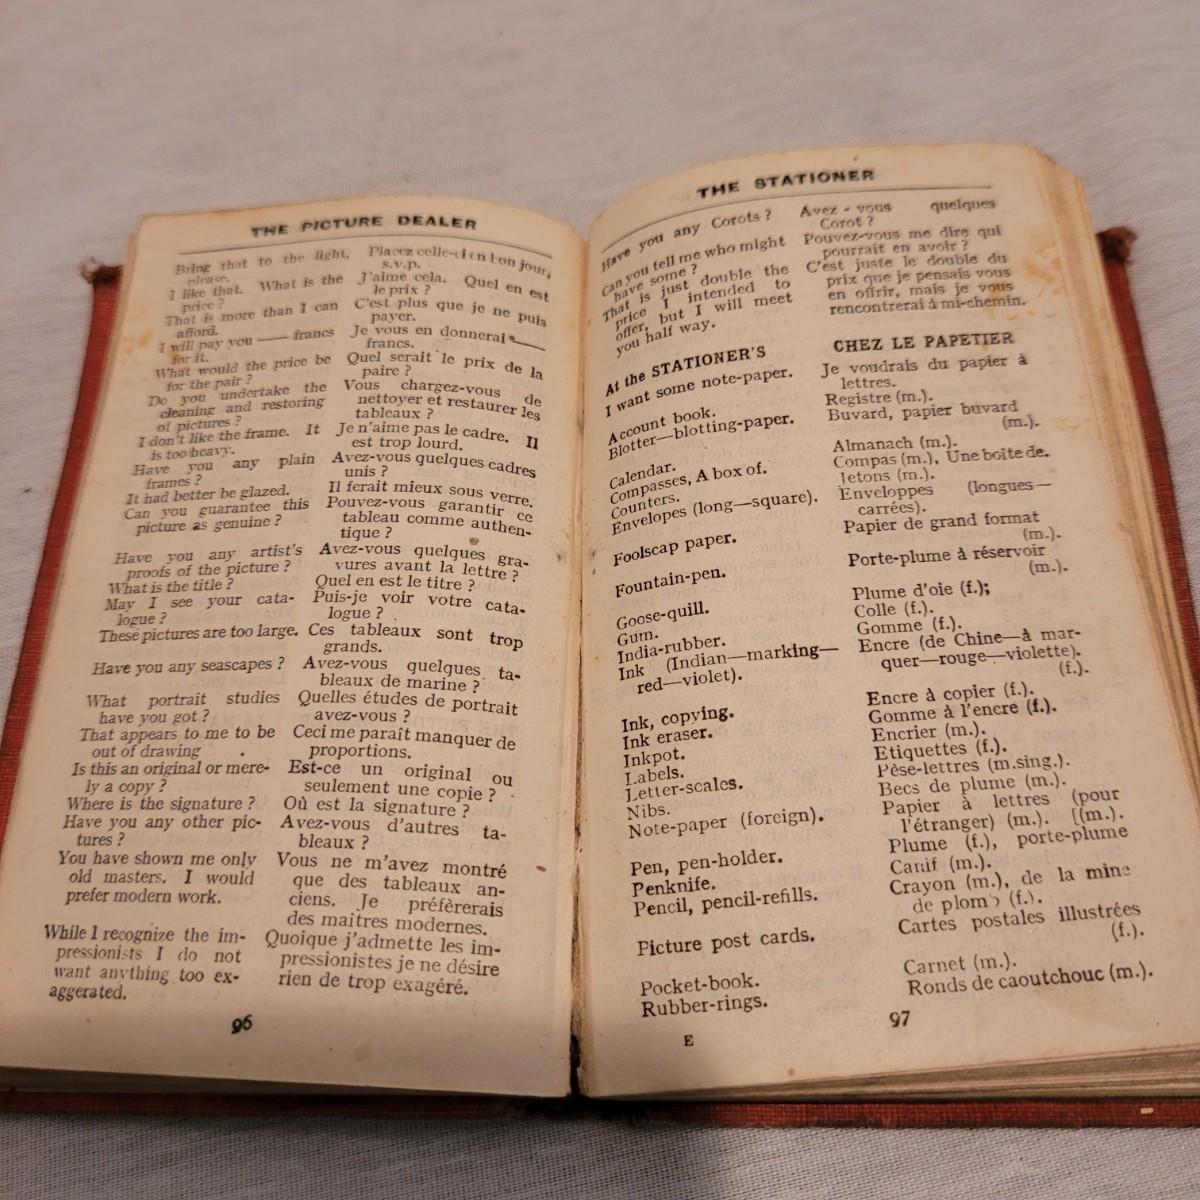 THE PICTURE DEALER
Bring that to the light,
please.
I like that. What is the
price ?
That is more than I can
afford.
I will pay you —— francs
for it.
What would the price be
for the pair ?
Do you undertake the
cleaning and restoring
of pictures ?
I don't like the frame. It
is too heavy.
Have you any plain
frames ?
It had better be glazed.
Can you guarantee this
picture as genuine ?
Have you any artist's
proofs of the picture ?
What is the title ?
May I see your cata-
logue ?
These pictures are too large.
Have you any seascapes ?
What portrait studies
have you got ?
That appears to me to be
out of drawing .
Is this an original or mere-
ly a copy ?
Where is the signature ?
Have you any other pic-
tures ?
You have shown me only
old masters. I would
prefer modern work.
While I recognize the im-
pressionists I do not
want anything too ex-
aggerated.
Placez celle-ci en bon jour,
s.v.p.
J'aime cela. Quel en est
le prix ?
C'est plus que je ne puis
payer.
Je vous en donnerai ——
francs.
Quel serait le prix de la
paire ?
Vous chargez-vous de
nettoyer et restaurer les
tableaux ?
Je n'aime pas le cadre. Il
est trop lourd.
Avez-vous quelques cadres
unis ?
Il ferait mieux sous verre.
Pouvez-vous garantir ce
tableau comme authen-
tique ?
Avez-vous quelques gra-
vures avant la lettre ?
Quel en est le titre ?
Puis-je voir votre cata-
logue ?
Ces tableaux sont trop
grands.
Avez-vous quelques ta-
bleaux de marine ?
Quelles études de portrait
avez-vous ?
Ceci me paraît manquer de
proportions.
Est-ce un original ou
seulement une copie ?
Où est la signature ?
Avez-vous d'autres ta-
bleaux ?
Vous ne m'avez montré
que des tableaux an-
ciens. Je préfèrerais
des maîtres modernes.
Quoique j'admette les im-
pressionistes je ne désire
rien de trop exagéré.
96
THE STATIONER
Have you any Corots ?
Can you tell me who might
have some ?
That is just double the
price I intended to
offer, but I will meet
you half way.
Avez-vous quelques
Corot ?
Pouvez-vous me dire qui
pourrait en avoir ?
C'est juste le double du
prix que je pensais vous
en offrir, mais je vous
rencontrerai à mi-chemin.
At the STATIONER'S
I want some note-paper.
Account book.
Blotter—blotting-paper.
Calendar.
Compasses, A box of.
Counters.
Envelopes (long—square).
Foolscap paper.
Fountain-pen.
Goose-quill.
Gum.
India-rubber.
Ink (Indian—marking—
red—violet).
Ink, copying.
Ink eraser.
Inkpot.
Labels.
Letter-scales.
Nibs.
Note-paper (foreign).
Pen, pen-holder.
Penknife.
Pencil, pencil-refills.
Picture post cards.
Pocket-book.
Rubber-rings.
CHEZ LE PAPETIER
Je voudrais du papier à
lettres.
Registre (m.).
Buvard, papier buvard
(m.).
Almanach (m.).
Compas (m.), Une boîte de.
Jetons (m.).
Enveloppes (longues—
carrées).
Papier de grand format
(m.).
Porte-plume à réservoir
(m.).
Plume d'oie (f.);
Colle (f.).
Gomme (f.).
Encre (de Chine—à mar-
quer—rouge—violette).
(f.).
Encre à copier (f.).
Gomme à l'encre (f.).
Encrier (m.).
Etiquettes (f.).
Pèse-lettres (m.sing.).
Becs de plume (m.).
Papier à lettres (pour
l'étranger) (m.). [(m.).
Plume (f.), porte-plume
Canif (m.).
Crayon (m.), de la mine
de plomb (f.).
Cartes postales illustrées
(f.).
Carnet (m.).
Ronds de caoutchouc (m.).
E
97